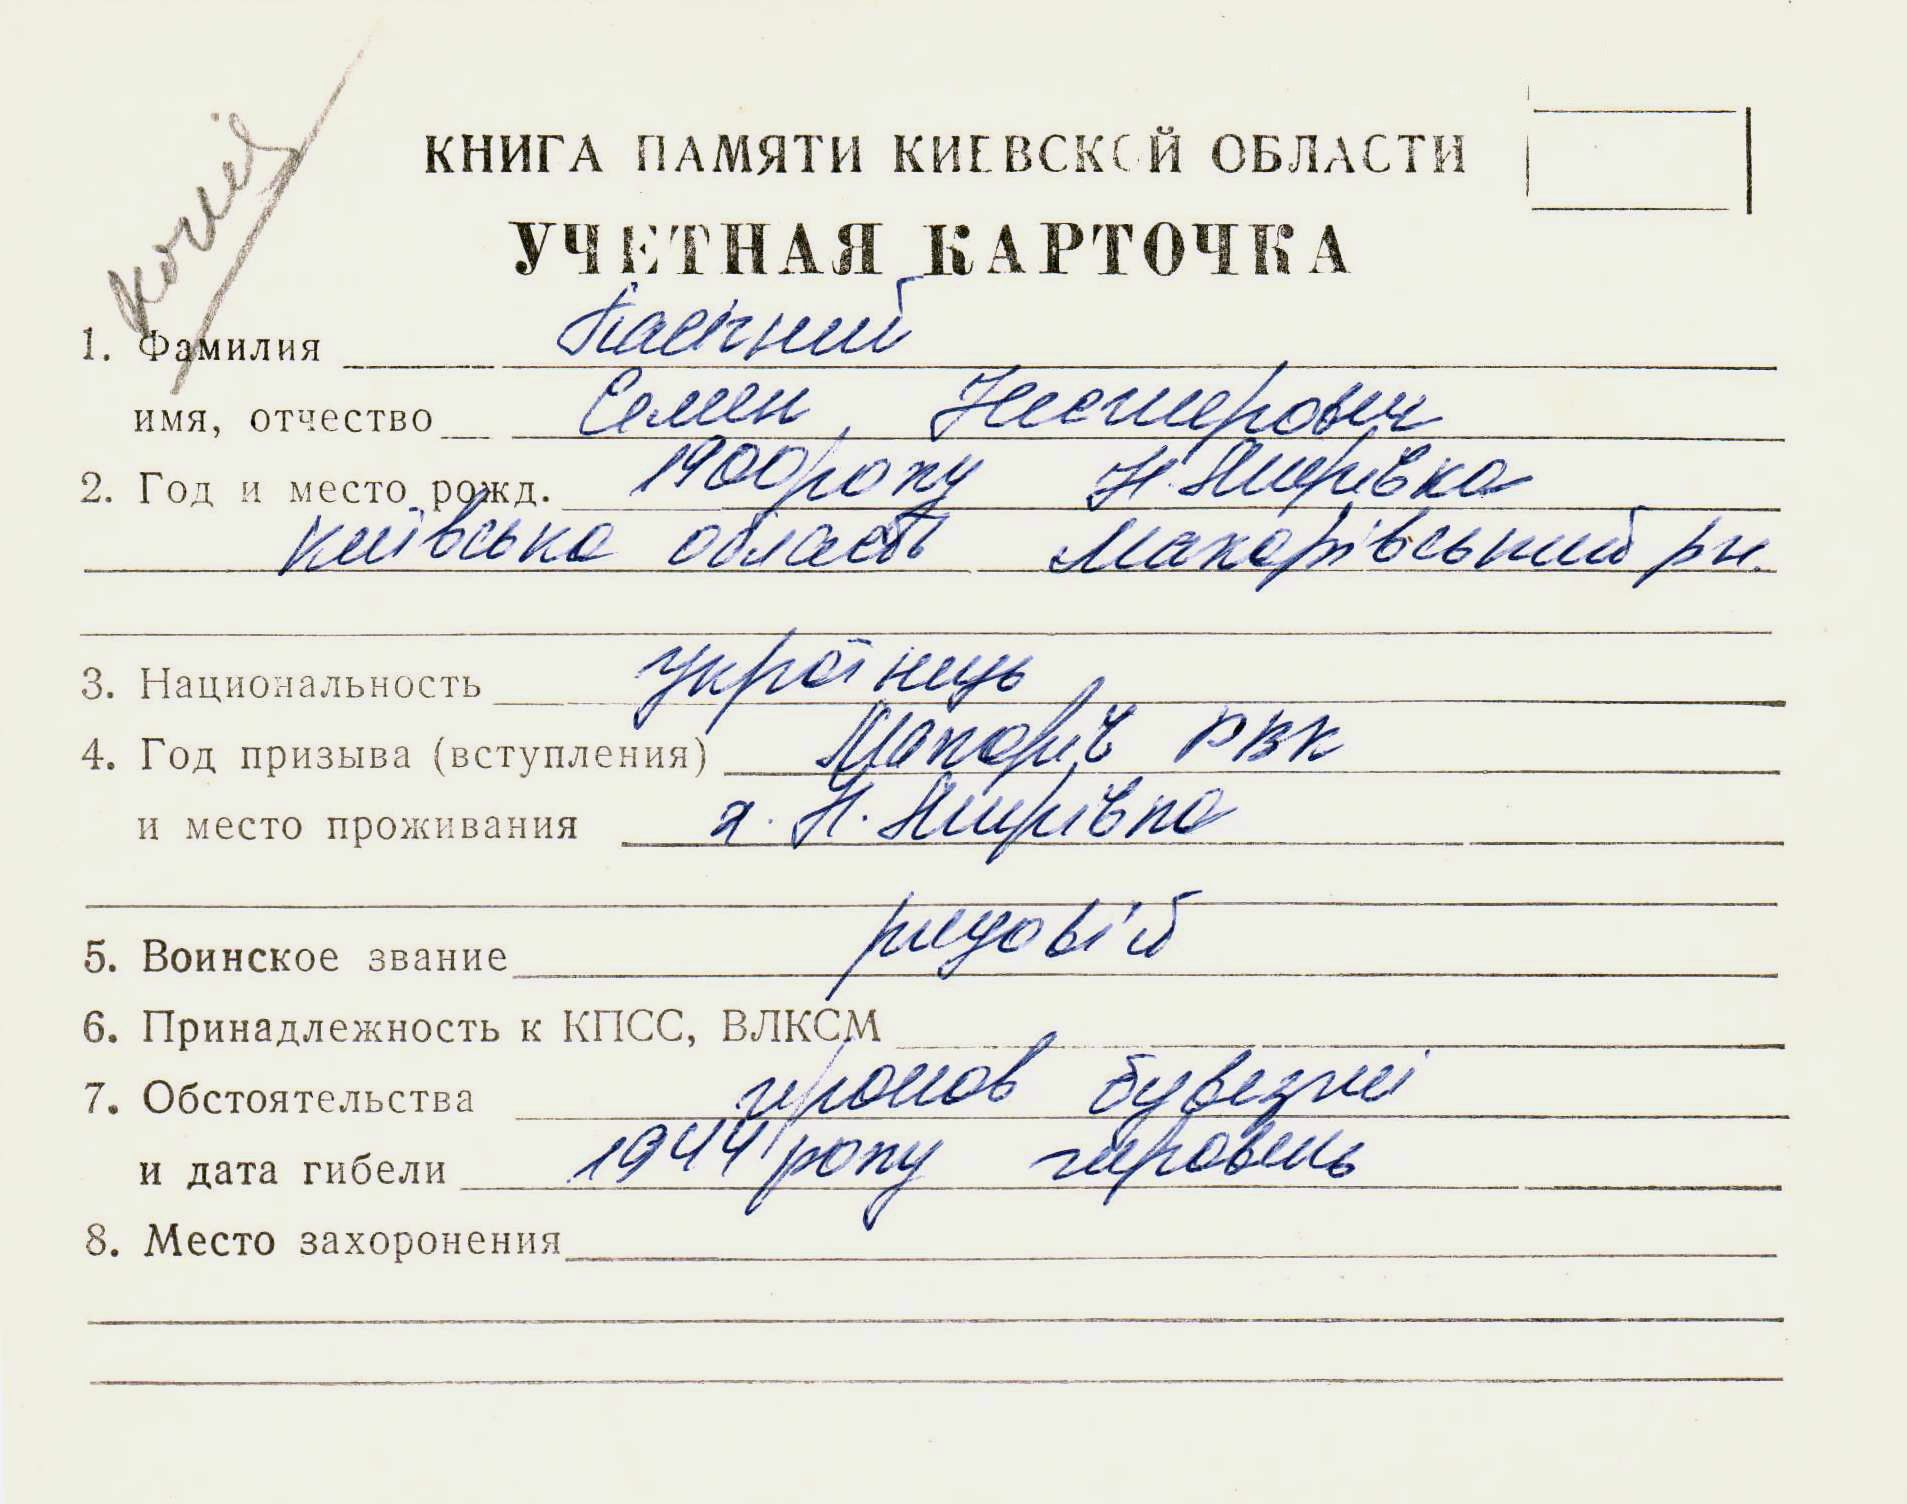 копія
КНИГА ПАМЯТИ КИЕВСКОЙ ОБЛАСТИ
УЧЕТНАЯ КАРТОЧКА
1. Фамилия Пасічний
имя, отчество Семен Нестерович
2. Год и место рожд. 1900 року Н. Ясирівка
Київська область Макарівський рн.
3. Национальность українець
4. Год призыва (вступления) Макарів РВК
и место проживания Н. Ясирівка
5. Воинское звание рядовій
6. Принадлежность к КПСС, ВЛКСМ
7. Обстоятельства пропов безвісті
и дата гибели 1944 року червень
8. Место захоронения